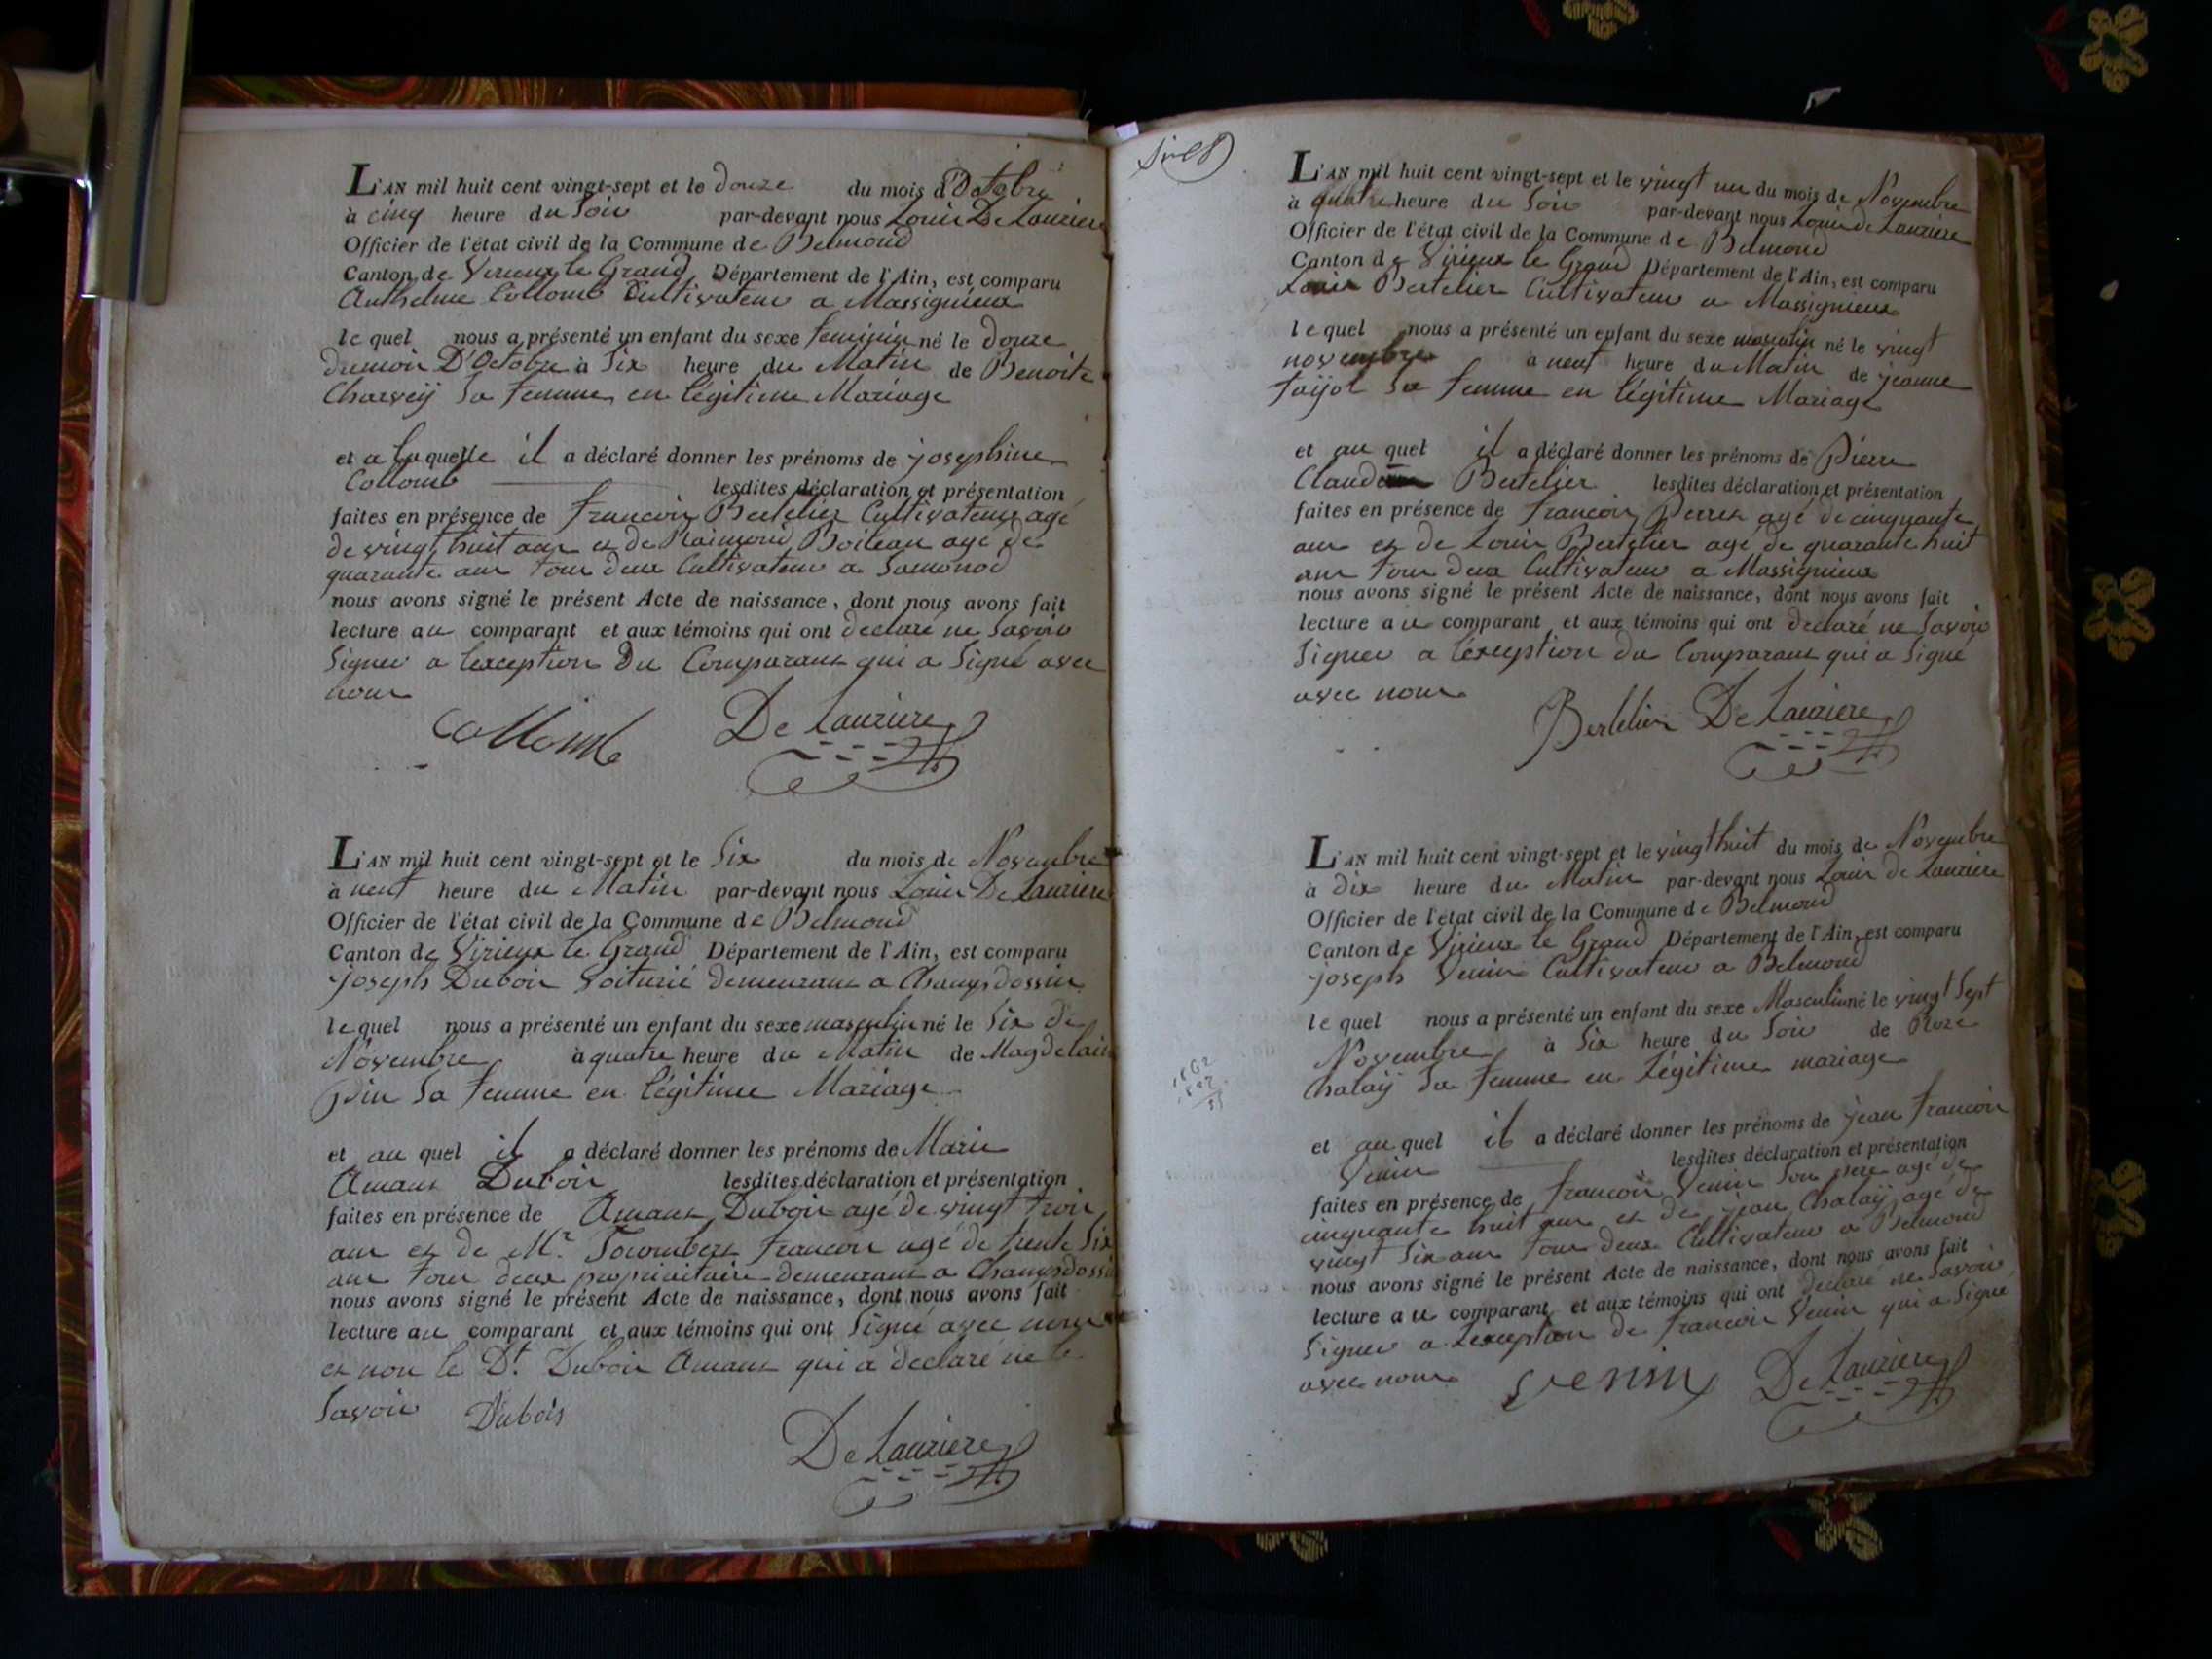 L'AN mil huit cent vingt-sept et le douze du mois d'Octobre
à cinq heure du Soir par-devant nous Louis De Lauziere
Officier de l'état civil de la Commune de Belmond
Canton de Virieux le Grand Département de l'Ain, est comparu
Anthelme Collomb Cultivateur a Massignieux
le quel nous a présenté un enfant du sexe feminin né le douze
du mois D'Octobre à Six heure du Matin de Benoite
Charveÿ Sa femme en légitime Mariage
et a laquelle il a déclaré donner les prénoms de josephine
Collomb lesdites déclaration et présentation
faites en présence de francois Bertelier Cultivateur agé
de vingt huit ans et de Raimond Boileau agé de
quarante ans tous deux Cultivateur a Samonod
nous avons signé le présent Acte de naissance, dont nous avons fait
lecture au comparant et aux témoins qui ont declaré ne Savoir
Signer a lexception Du Comparant qui a Signé avec
nous
Collomb De Lauziere
L'AN mil huit cent vingt-sept et le Six du mois de Novembre
à neuf heure du Matin par-devant nous Louis De Lauziere
Officier de l'état civil de la Commune de Belmond
Canton de Virieux le Grand Département de l'Ain, est comparu
joseph Dubois Voiturié demeurant a Champdossin
le quel nous a présenté un enfant du sexe masculin né le Six de
Novembre à quatre heure du Matin de Magdelaine
pin Sa femme en légitime Mariage
et au quel il a déclaré donner les prénoms de Marie
Amant Dubois lesdites déclaration et présentation
faites en présence de Amant Dubois agé de vingt trois
ans et de Mr. francois agé de trente Six
ans tous deux propriaitaire demeurant a Champdossin
nous avons signé le présent Acte de naissance, dont nous avons fait
lecture au comparant et aux témoins qui ont Signé avec nous
et non le Dt. Dubois Amant qui a declaré ne le
Savoir Dubois
De Lauziere
L'AN mil huit cent vingt-sept et le vingt un du mois de Novembre
à quatre heure du Soir par-devant nous Louis de Lauziere
Officier de l'état civil de la Commune de Belmond
Canton de Virieux le Grand Département de l'Ain, est comparu
Louis Bertelier Cultivateur a Massignieux
le quel nous a présenté un enfant du sexe masculin né le vingt
novembre à neuf heure du Matin de jeanne
fayol Sa femme en légitime Mariage
et au quel il a déclaré donner les prénoms de Pierre
Claude Bertelier lesdites déclaration et présentation
faites en présence de francois Perret agé de cinquante
ans et de Louis Bertelier agé de quarante huit
ans tous deux Cultivateur a Massignieux
nous avons signé le présent Acte de naissance, dont nous avons fait
lecture au comparant et aux témoins qui ont declaré ne Savoir
Signer a lexception du Comparant qui a Signé
avec nous
Bertelier De Lauziere
L'AN mil huit cent vingt-sept et le vingt huit du mois de Novembre
à dix heure du Matin par-devant nous Louis de Lauziere
Officier de l'état civil de la Commune de Belmond
Canton de Virieux le Grand Département de l'Ain, est comparu
joseph Venin Cultivateur a Belmond
le quel nous a présenté un enfant du sexe Masculin né le vingt Sept
Novembre à Six heure du Soir de Roze
Chalaÿ Sa femme en Légitime mariage
et au quel il a déclaré donner les prénoms de jean francois
Venin lesdites déclaration et présentation
faites en présence de francois Venin Son pere agé de
cinquante huit ans et de jean Chalaÿ agé de
vingt Six ans tous deux Cultivateur a Belmond
nous avons signé le présent Acte de naissance, dont nous avons fait
lecture au comparant et aux témoins qui ont declaré ne Savoir
Signer a Lexception de francois Venin qui a Signé
avec nous Venin De Lauziere